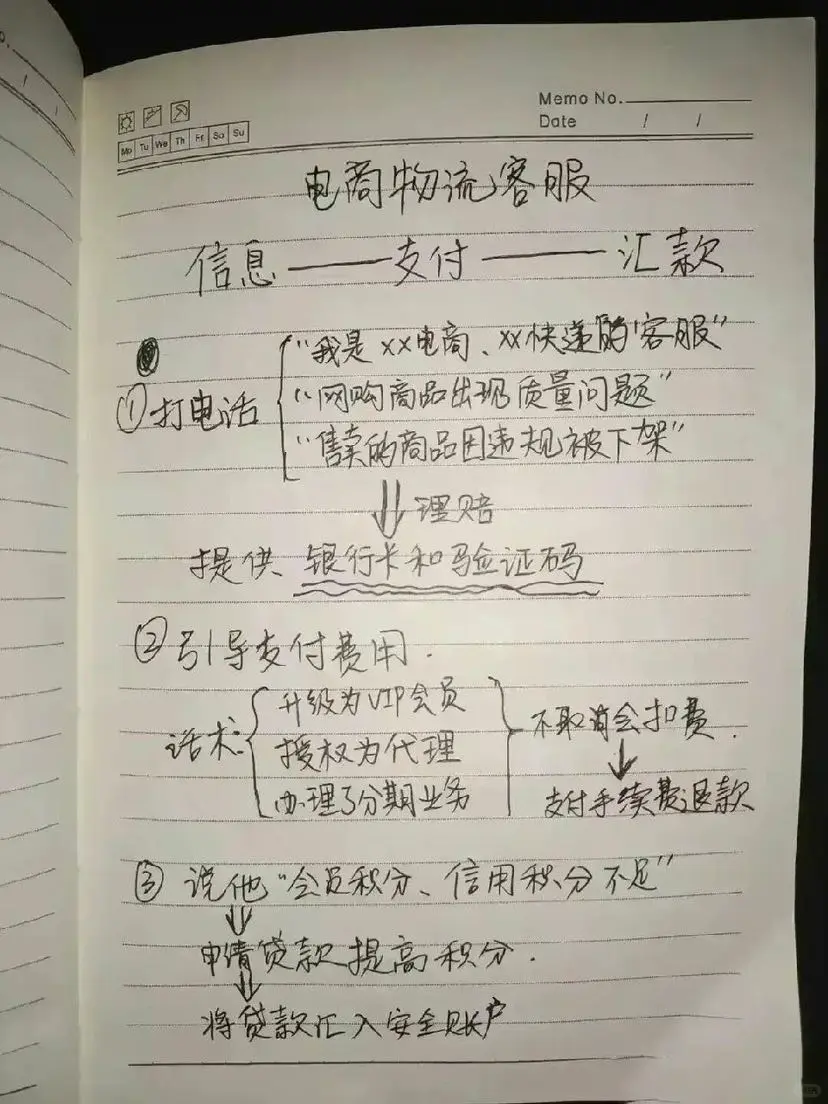 Memo No.
Date / /
Mo Tu We Th Fr Sa Su
电商物流客服
信息——支付——汇款
①打电话
"我是××电商、××快递的'客服"
"网购商品出现质量问题"
"售卖的商品因违规被下架"
理赔
提供、银行卡和验证码
②引导支付费用.
话术:
升级为VIP会员
授权为代理
办理了分期业务
不取消会扣费.
支付手续费退款
③说他"会员积分、信用积分不足"
申请贷款提高积分.
将贷款汇入安全账户